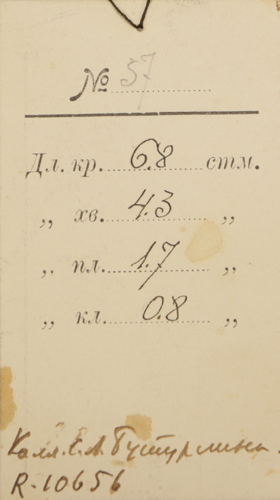 № 57
Дл. кр. 6.8 стм.
„ хв. 4.3 „
„ пл. 1.7 „
„ кл. 0.8 „
Колл. С. А. Бутурлина.
R-10656